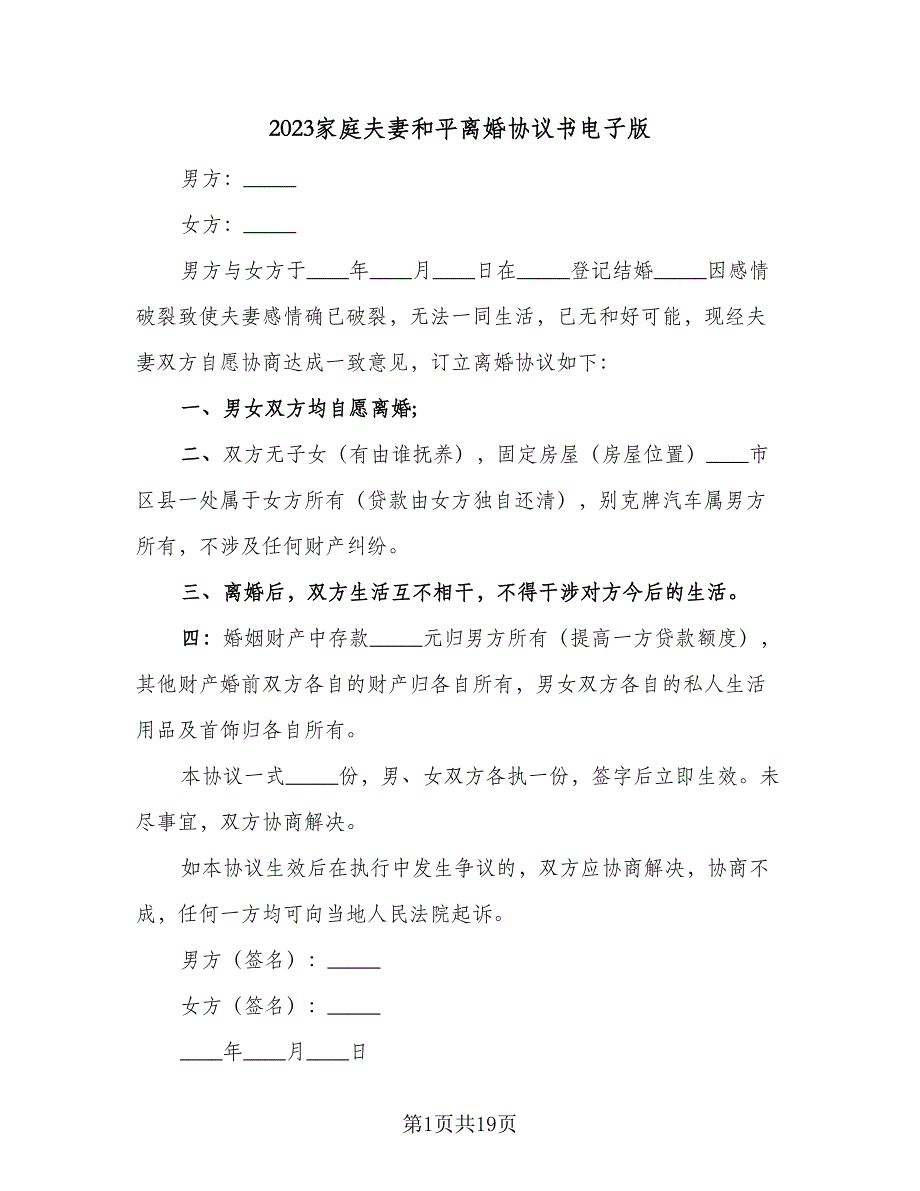 2023家庭夫妻和平离婚协议书电子版
男方：_____
女方：_____
男方与女方于____年____月____日在_____登记结婚_____因感情
破裂致使夫妻感情确已破裂，无法一同生活，已无和好可能，现经夫
妻双方自愿协商达成一致意见，订立离婚协议如下：
一、男女双方均自愿离婚;
二、双方无子女（有由谁抚养），固定房屋（房屋位置）____市
区县一处属于女方所有（贷款由女方独自还清），别克牌汽车属男方
所有，不涉及任何财产纠纷。
三、离婚后，双方生活互不相干，不得干涉对方今后的生活。
四：婚姻财产中存款_____元归男方所有（提高一方贷款额度），
其他财产婚前双方各自的财产归各自所有，男女双方各自的私人生活
用品及首饰归各自所有。
本协议一式_____份，男、女双方各执一份，签字后立即生效。未
尽事宜，双方协商解决。
如本协议生效后在执行中发生争议的，双方应协商解决，协商不
成，任何一方均可向当地人民法院起诉。
男方（签名）：_____
女方（签名）：_____
____年____月____日
第1页共19页